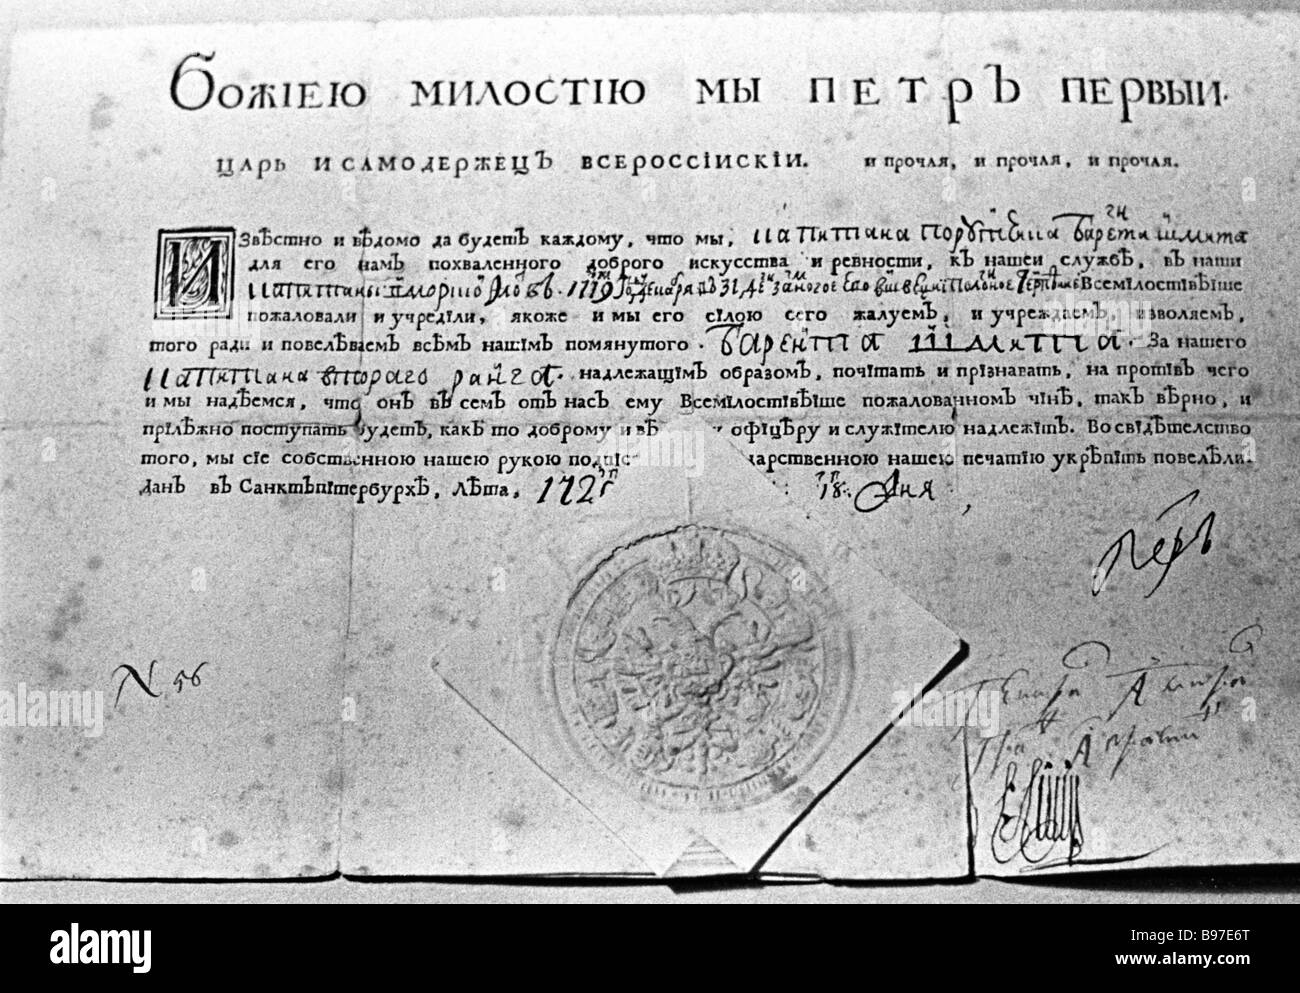 Божіею милостію мы Петръ первыи.
царь и самодержецъ всероссіискіи. и прочая, и прочая, и прочая.
Извѣстно и вѣдомо да будетъ каждому, что мы, капитана Барента шмита
для его намъ похваленного доброго искусства и ревности, къ нашеи службѣ, въ наши
капитаны 1719 Всемілостівѣіше
пожаловали и учреділи, якоже и мы его сілою сего жалуемъ, и учреждаемъ, изволяемъ,
того ради и повелѣваемъ всѣмъ нашімъ помянутого. Барента шмита. За нашего
капитана второго ранга. надлежащімъ образомъ, почітать и прізнавать, на протівъ чего
и мы надѣемся, что онъ въ семъ отъ насъ ему Всемілостівѣіше пожалованномъ чінѣ, такъ вѣрно, и
прілѣжно поступать будетъ, какъ то доброму и офіцѣру и служітелю надлежітъ. Во свідѣтелство
того, мы сіе собственною нашею рукою нашею печатію укрѣпіть повелѣли.
данъ въ Санктъпітербурхѣ, Лѣта, 18. дня
Петръ
N 56
alamy
Image ID: B97E6T
www.alamy.com